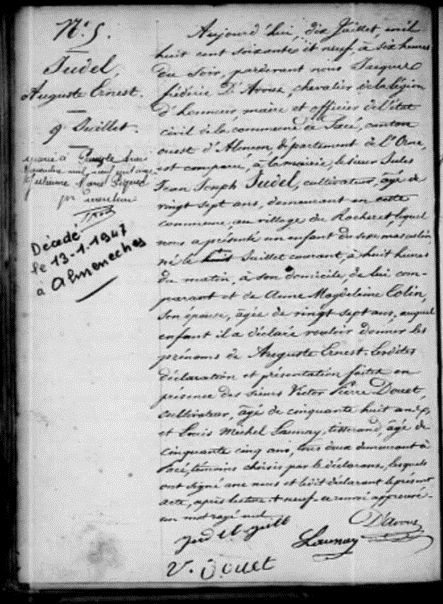 N: 5.
Judel,
Auguste Ernest.
9 Juillet.
marié à
Décédé
le 13-1-1947
à Almenèches
Aujourd'hui, dix Juillet, mil
huit cent soixante et neuf, à six heures
du soir, pardevant nous Jacques
frédéric D'Avoust, chevalier de la légion
d'honneur, maire et officier de l'état
civil de la commune de Pacé, canton
ouest d'Alençon, département de l'Orne,
est comparu, à la mairie, le sieur Jules
Jean Joseph Judel, cultivateur, âgé de
vingt sept ans, demeurant en cette
commune, au village du Rocheret, lequel
nous a présenté un enfant du sexe masculin
né le Juillet courant, à huit heures
du matin, à son domicile de lui com-
parant et de Anne Magdeleine Colin,
son épouse, âgée de vingt sept ans, auquel
enfant il a déclaré vouloir donner les
prénoms de Auguste Ernest. Lesdites
déclaration et présentation faites en
présence des sieurs Victor Pierre Douet,
cultivateur, âgé de cinquante huit ans,
et Louis Michel Launay, tisserand, âgé de
cinquante cinq ans, tous deux demeurant à
Pacé, témoins choisis par le déclarant, lesquels
ont signé avec nous et ledit déclarant le présent
acte, après lecture. et neuf = ce renvoi approuvé
un mot rayé nul.
Launay
V. Douet